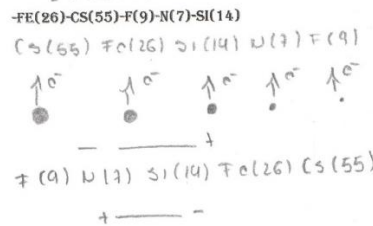 -FE(26)-CS(55)-F(9)-N(7)-SI(14)
Cs(55) Fe(26) Si(14) N(7) F(9)
e⁻ e⁻ e⁻ e⁻ e⁻
− +
F(9) N(7) Si(14) Fe(26) Cs(55)
+ −